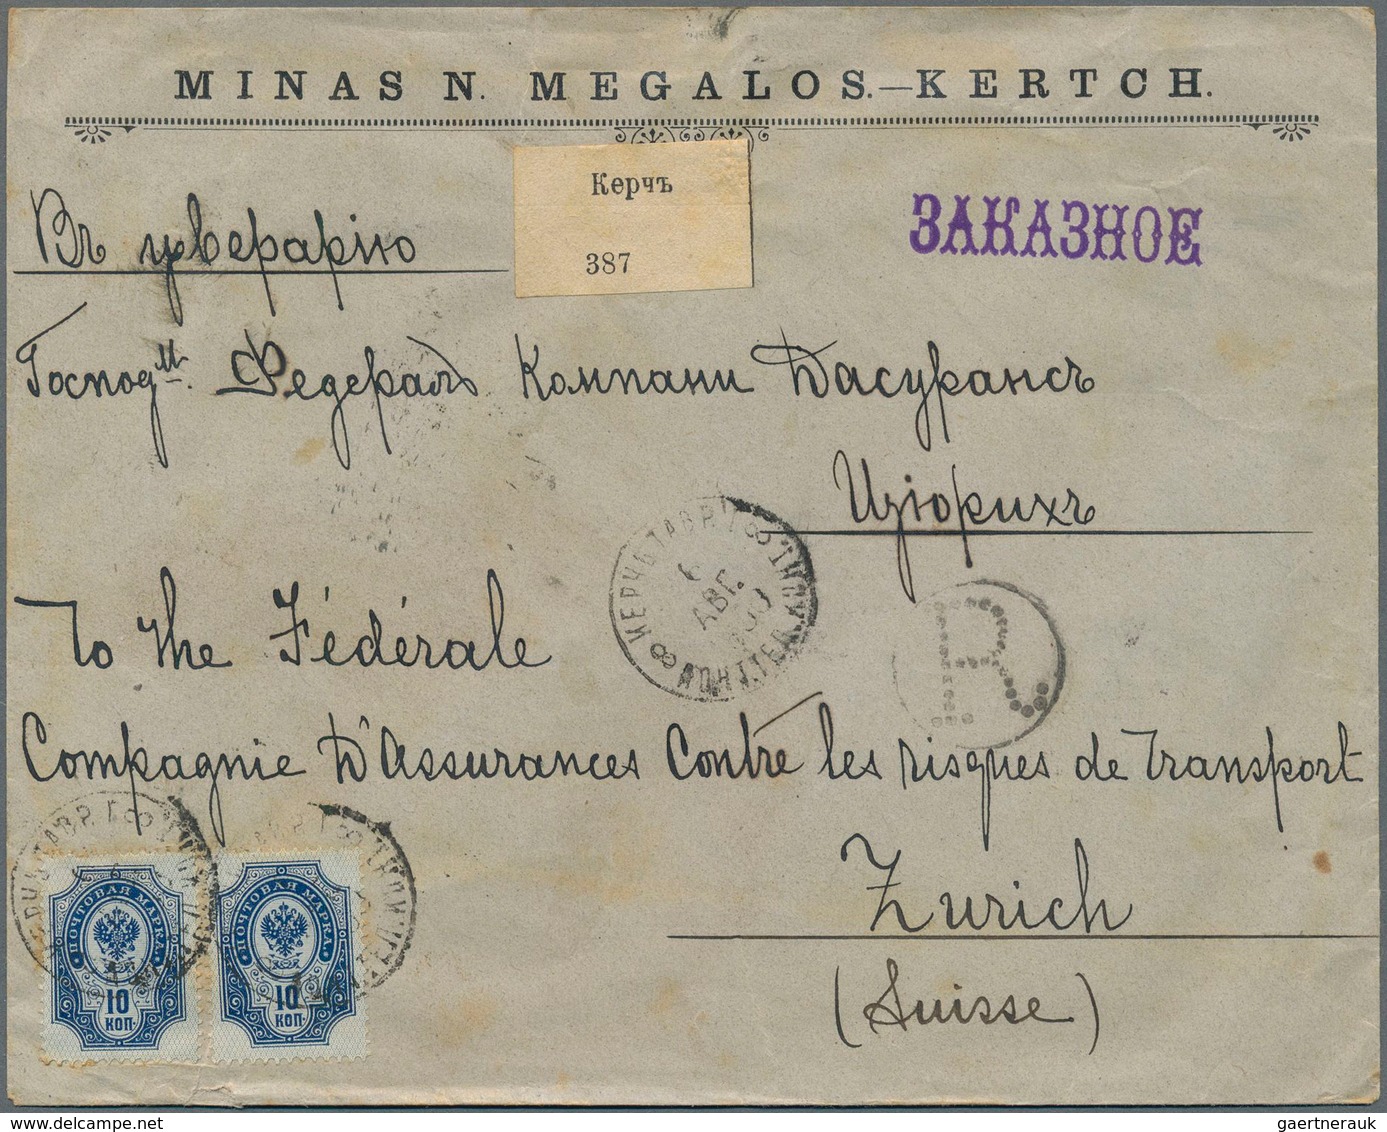 MINAS N. MEGALOS.—KERTCH.
Керчъ
387
ЗАКАЗНОЕ
Въ цверарію
Господ м. Федералъ Компани Дасурансъ
Цюрихъ
КЕРЧЬ ТАВР. Г.
6
АВГ.
R
To the Fédérale
Compagnie D'Assurances Contre les risques de Transport
Zurich
(Suisse)
ПОЧТОВАЯ МАРКА
10
КОП.
ПОЧТОВАЯ МАРКА
10
КОП.
gaertnerauk